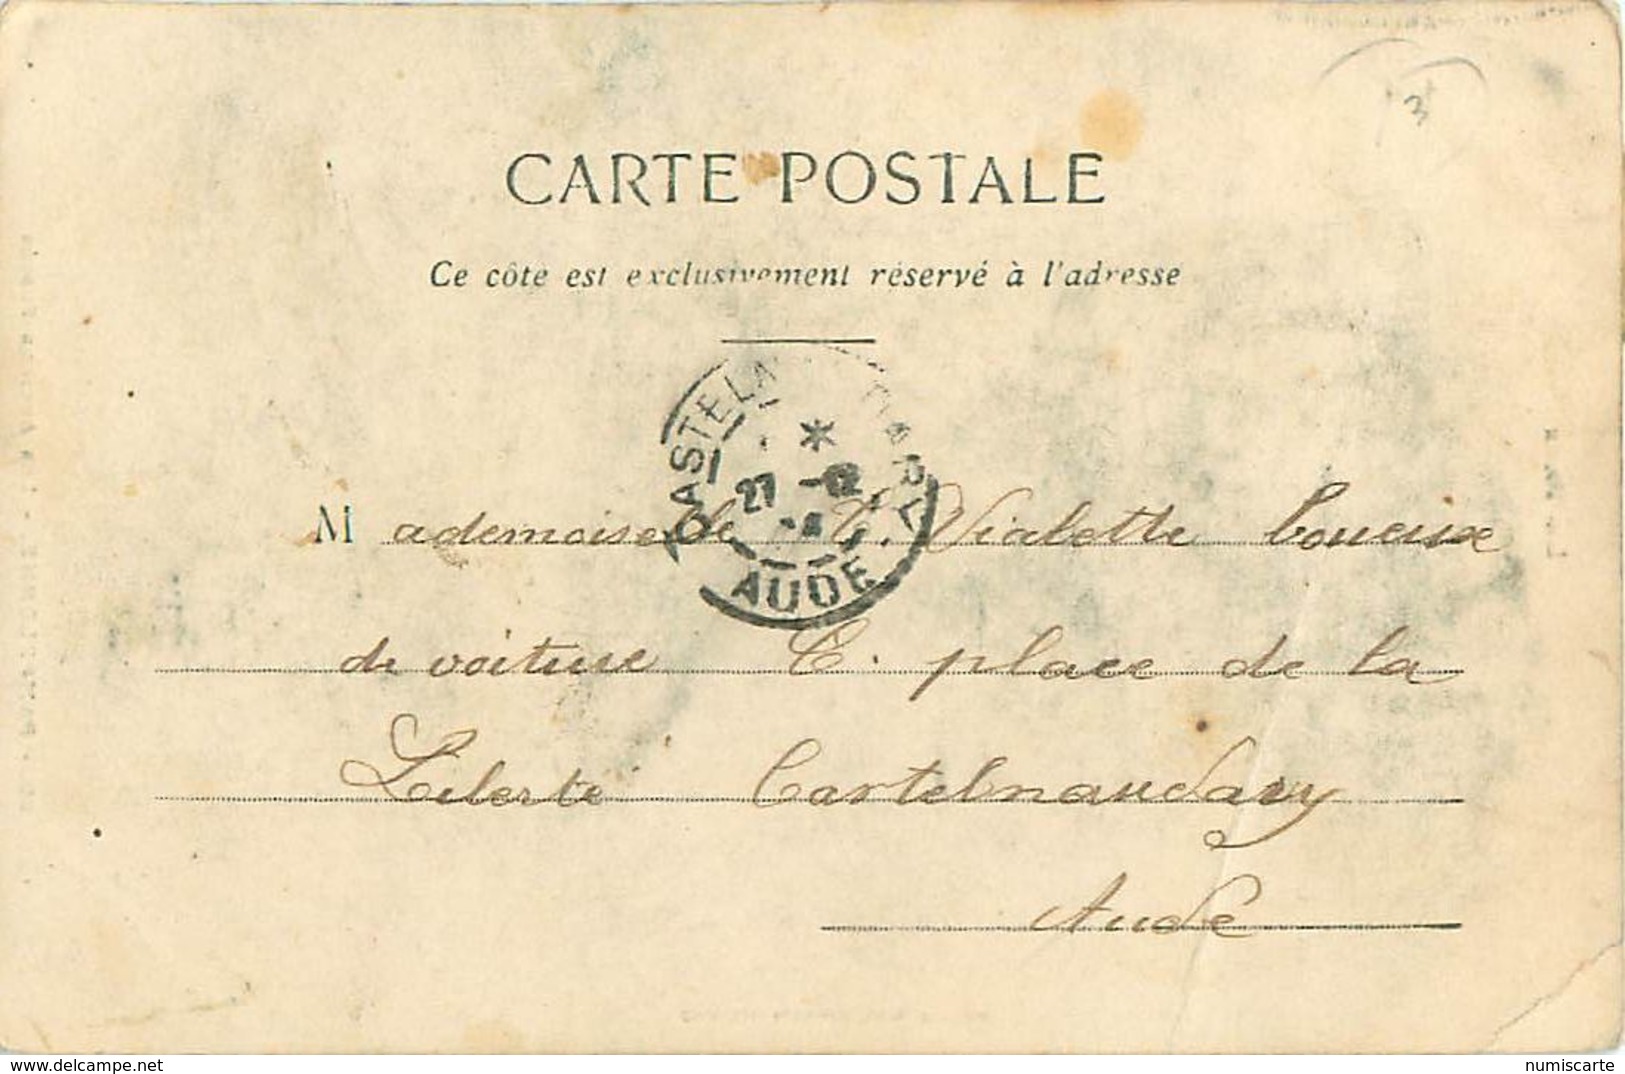 3
CARTE POSTALE
Ce côte est exclusivement réservé à l'adresse
CASTELNAUDARY
27 -12
AUDE
Mademoiselle C. Vialette loueuse
de voiture C. place de la
Liberté Castelnaudary
Aude
https://www.delcampe.net
numiscarte